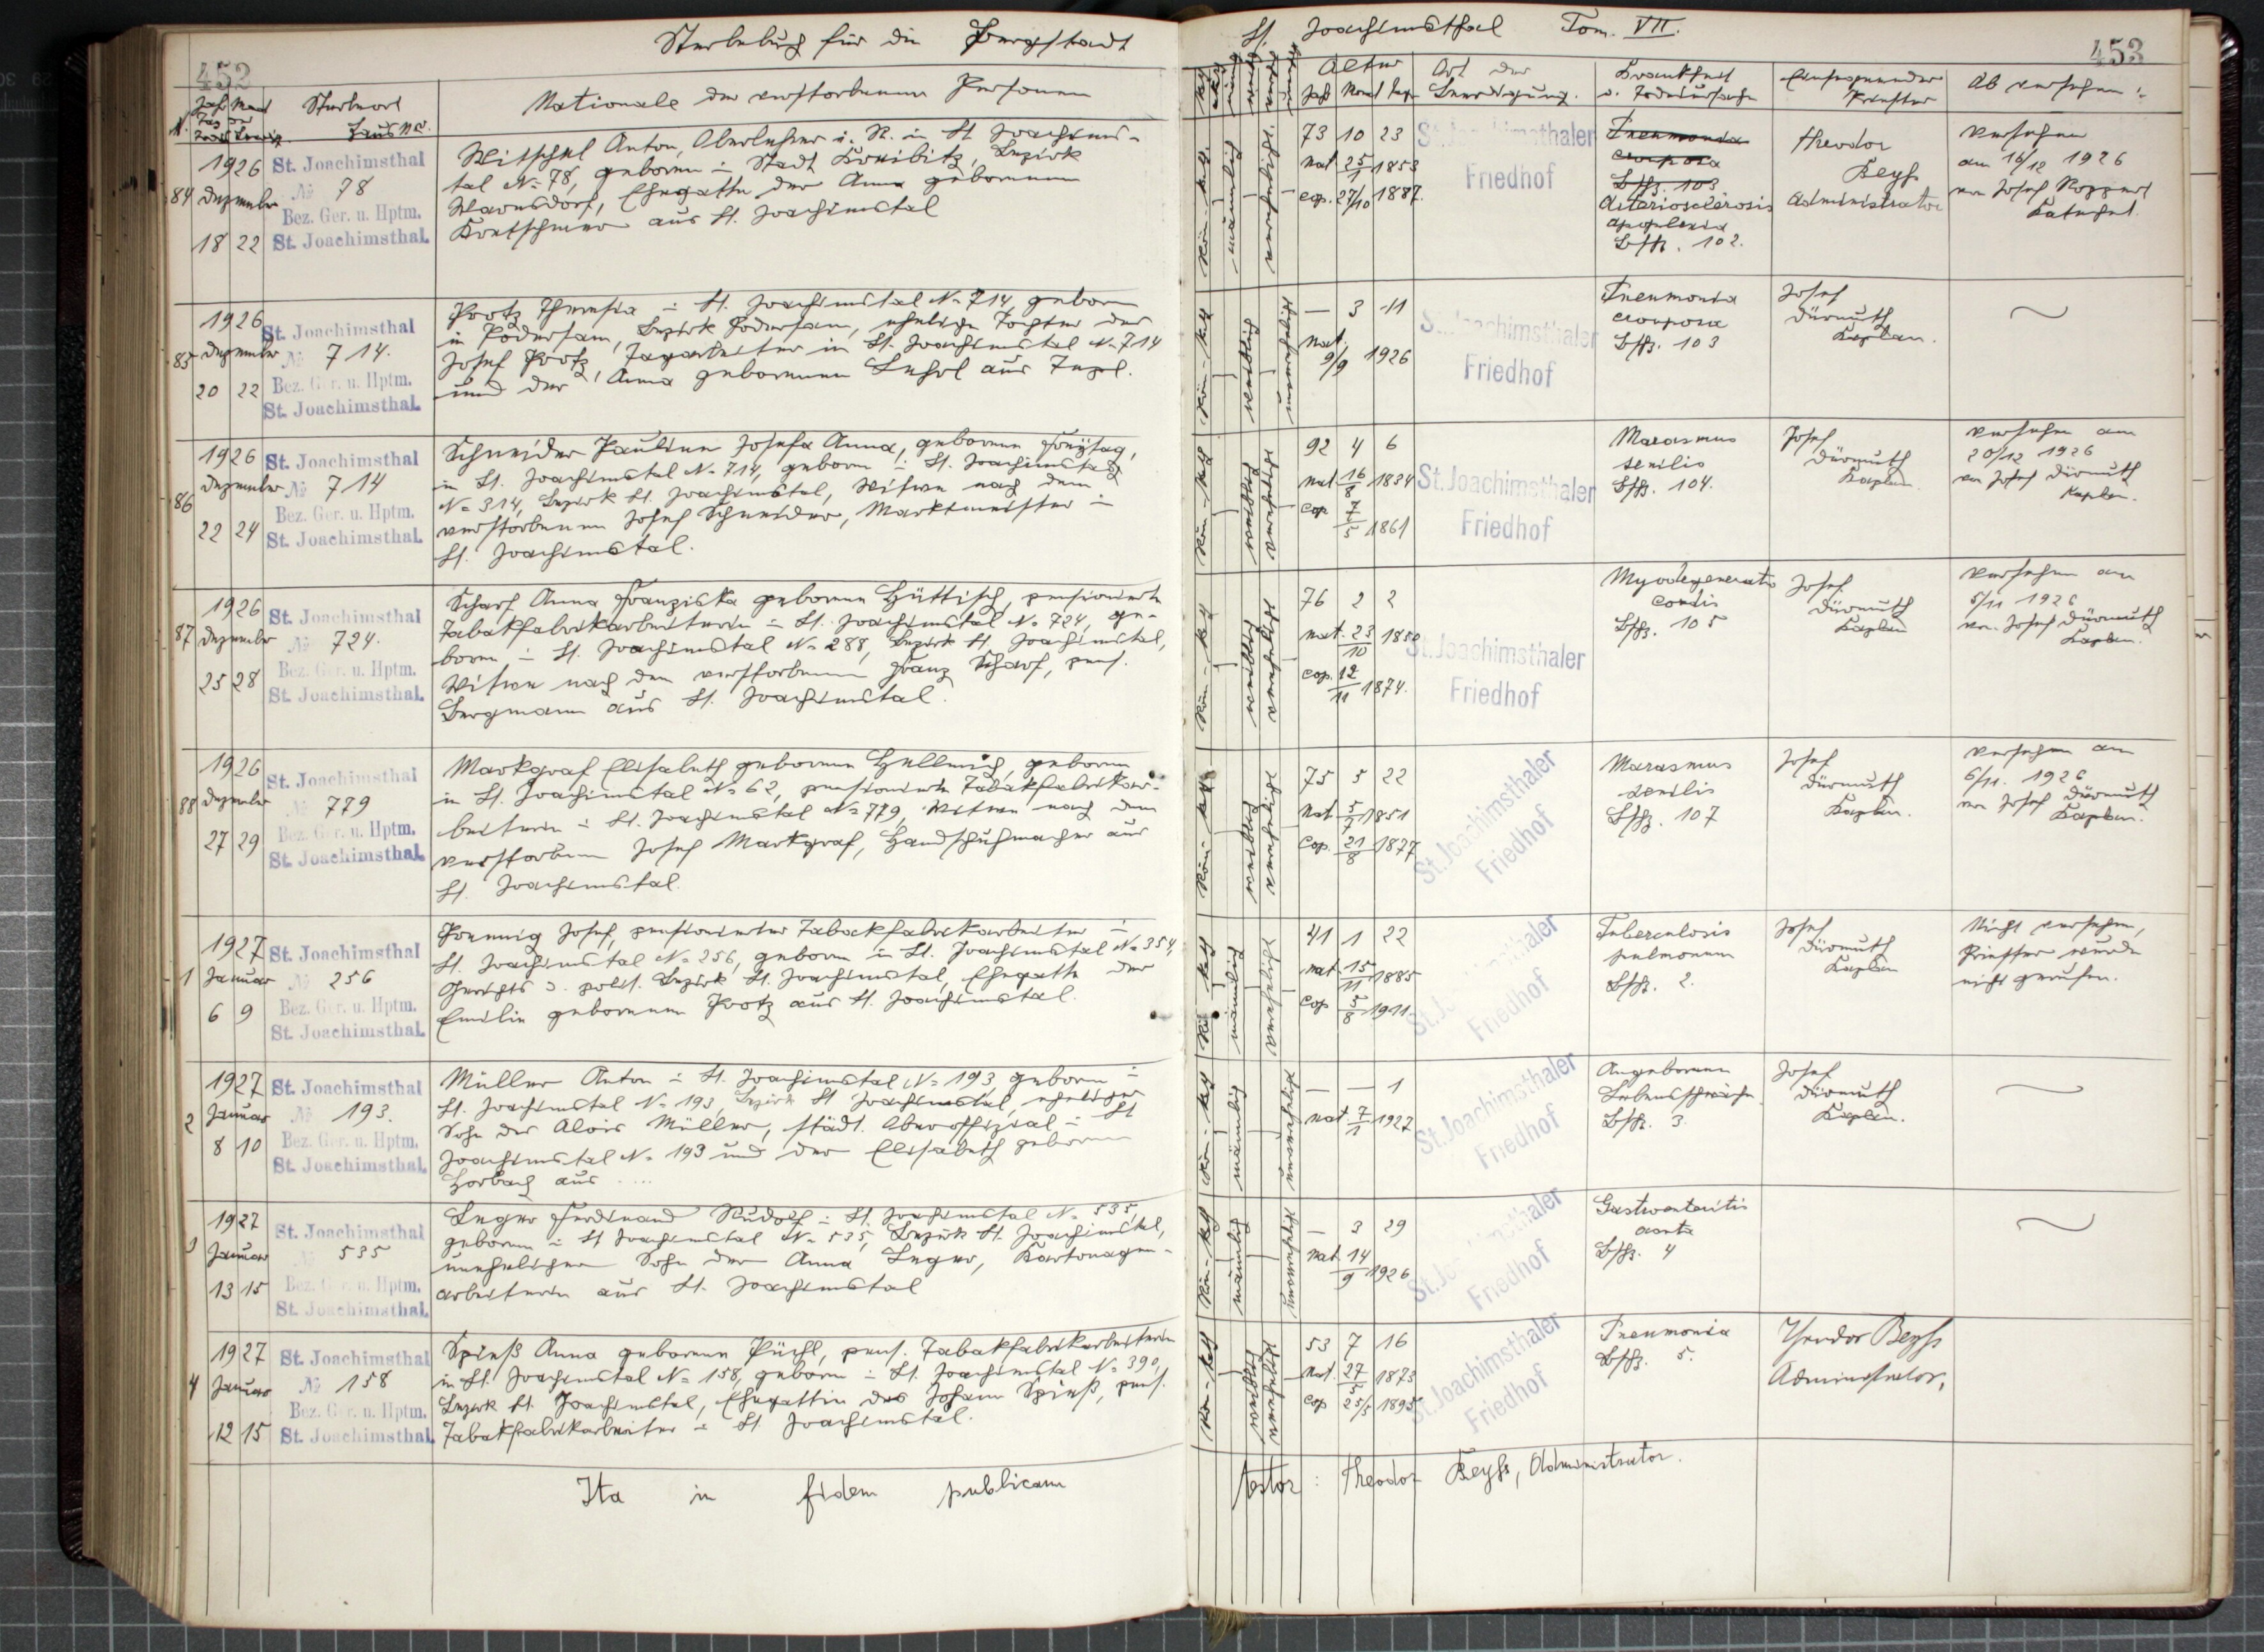 Sterbebuch für die Bergstadt
452
Nationale der verstorbenen Personen
Sterbeort
Haus No.
1926
84 Dezember
18 22
St. Joachimsthal
No 78
Bez. Ger. u. Hptm.
St. Joachimsthal.
Witschel Anton, Oberlehrer i. R. in St. Joachims-
tal No 78, geboren in Stadt Kreibitz, Bezirk
Warnsdorf, Ehegatte der Anna geborenen
Kretschmer aus St. Joachimstal
1926
85 Dezember
20 22
St. Joachimsthal
No 714.
Bez. Ger. u. Hptm.
St. Joachimsthal.
Theresia in St. Joachimstal No 714, geboren
in Podersam, Bezirk Podersam, eheliche Tochter des
Josef, Tagarbeiter in St. Joachimstal No 714
und der Anna geborenen aus Tepl.
1926
86 Dezember
22 24
St. Joachimsthal
No 714
Bez. Ger. u. Hptm.
St. Joachimsthal.
Schneider Pauline Josefa Anna, geborene Freytag,
in St. Joachimstal No 714, geboren in St. Joachimstal
No 314, Bezirk St. Joachimstal, Witwe nach dem
verstorbenen Josef Schneider, Marktmeister in
St. Joachimstal.
1926
87 Dezember
25 28
St. Joachimsthal
No 724.
Bez. Ger. u. Hptm.
St. Joachimsthal.
Scharf Anna Franziska geborene Hüttisch, pensionierte
Tabakfabrikarbeiterin in St. Joachimstal No 724, ge-
boren in St. Joachimstal No 288, Bezirk St. Joachimstal,
Witwe nach dem verstorbenen Franz Scharf, pens.
Bergmann aus St. Joachimstal.
1926
88 Dezember
27 29
St. Joachimsthal
No 779
Bez. Ger. u. Hptm.
St. Joachimsthal.
Markgraf Elisabeth geborene Hellmich, geboren
in St. Joachimstal No 62, pensionierte Tabakfabrikar-
beiterin in St. Joachimstal No 779, Witwe nach dem
verstorbenen Josef Markgraf, Handschuhmacher aus
St. Joachimstal.
1927
1 Januar
6 9
St. Joachimsthal
No 256
Bez. Ger. u. Hptm.
St. Joachimsthal.
Josef, pensionierter Tabakfabrikarbeiter in
St. Joachimstal No 256, geboren in St. Joachimstal No 354,
Gerichts u. polit. Bezirk St. Joachimstal, Ehegatte der
Emilie geborenen aus St. Joachimstal.
1927
2 Januar
8 10
St. Joachimsthal
No 193.
Bez. Ger. u. Hptm.
St. Joachimsthal.
Müller Anton in St. Joachimstal No 193, geboren in
St. Joachimstal No 193, Bezirk St. Joachimstal, ehelicher
Sohn des Alois Müller, städt. Oberoffizial in St.
Joachimstal No 193 und der Elisabeth geborenen
Horbach aus ....
1927
3 Januar
13 15
St. Joachimsthal
No 535
Bez. Ger. u. Hptm.
St. Joachimsthal.
Ferdinand Rudolf in St. Joachimstal No 535,
geboren in St. Joachimstal No 535, Bezirk St. Joachimstal,
unehelicher Sohn der Anna, Kartonagen-
arbeiterin aus St. Joachimstal
1927
4 Januar
12 15
St. Joachimsthal
No 158
Bez. Ger. u. Hptm.
St. Joachimsthal.
Spieß Anna geborene Püchl, pens. Tabakfabrikarbeiterin
in St. Joachimstal No 158, geboren in St. Joachimstal No 390,
Bezirk St. Joachimstal, Ehegattin des Johann Spieß, pens.
Tabakfabrikarbeiter in St. Joachimstal.
Ita in fidem publicam
St. Joachimsthal Tom. VII.
453
Alter
Jahr Monat Tage
Art der
Beerdigung.
Krankheit
u. Todesursache
Einsegnender
Priester
Ob versehen:
73 10 23
nat 25/1 1853
cop. 27/10 1887.
St. Joachimsthaler
Friedhof
Pneumonia
crouposa
Bschg. 103
Arteriosclerosis
apoplexia
Bschg. 102.
Theodor
Beyhs
Administrator
versehen
am 16/12 1926
von Josef
Katechet.
röm-kath
männlich
verehelicht.
— 3 11
nat.
9/9 1926
St. Joachimsthaler
Friedhof
Pneumonia
crouposa
Bschg. 103
Josef
Dürmuth
Kaplan.
röm-kath
weiblich
unverehelicht
92 4 6
nat 16/8 1834
cop 7/5 1861
St. Joachimsthaler
Friedhof
Marasmus
senilis
Bschg. 104.
Josef
Dürmuth
Kaplan
versehen am
20/12 1926
von Josef Dürmuth
Kaplan.
röm-kath
weiblich
verehelicht
76 2 2
nat. 23/10 1850
cop. 12/11 1874.
St. Joachimsthaler
Friedhof
Myodegeneratio
cordis
Bschg. 105
Josef
Dürmuth
Kaplan
versehen am
5/11 1926
von Josef Dürmuth
Kaplan.
röm-kath
weiblich
verehelicht
75 5 22
nat 5/7 1851
cop. 21/8 1877
St. Joachimsthaler
Friedhof
Marasmus
senilis
Bschg. 107
Josef
Dürmuth
Kaplan.
versehen am
6/11. 1926
von Josef Dürmuth
Kaplan.
röm-kath
weiblich
verehelicht
41 1 22
nat 15/11 1885
cop 5/8 1911
St. Joachimsthaler
Friedhof
Tuberculosis
pulmonum
Bschg. 2.
Josef
Dürmuth
Kaplan
Nicht versehen,
Priester wurde
nicht gerufen.
röm-kath
männlich
verehelicht
— — 1
nat 7/1 1927
St. Joachimsthaler
Friedhof
Angeborene
Lebensschwäche
Bschg. 3.
Josef
Dürmuth
Kaplan.
röm-kath
männlich
unverehelicht
— 3 29
nat. 14/9 1926
St. Joachimsthaler
Friedhof
Gastroenteritis
acuta
Bschg. 4
röm-kath
männlich
unverehelicht
53 7 16
nat. 27/5 1873
cop 25/5 1895
St. Joachimsthaler
Friedhof
Pneumonia
Bschg. 5.
Theodor Beyhs
Administrator,
röm-kath
weiblich
verehelicht
testor: Theodor Beyhs, Administrator.